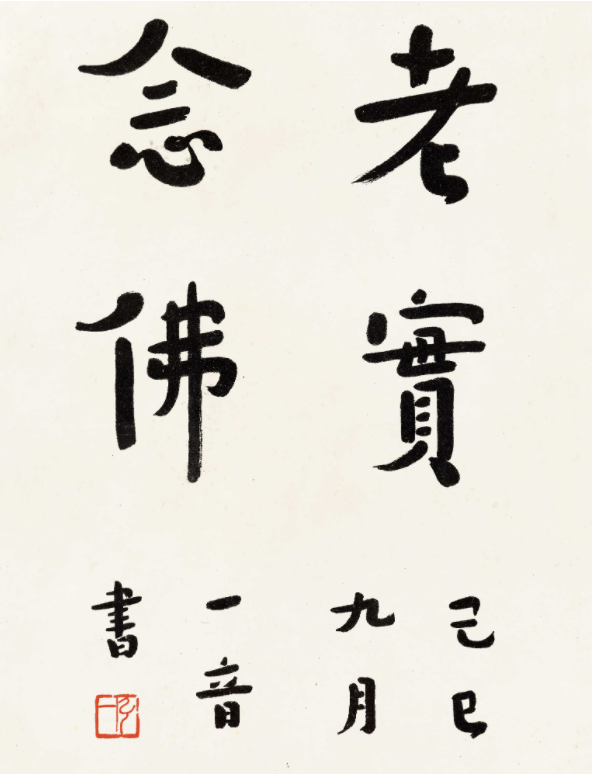 老實
念佛
己巳
九月
一音
書